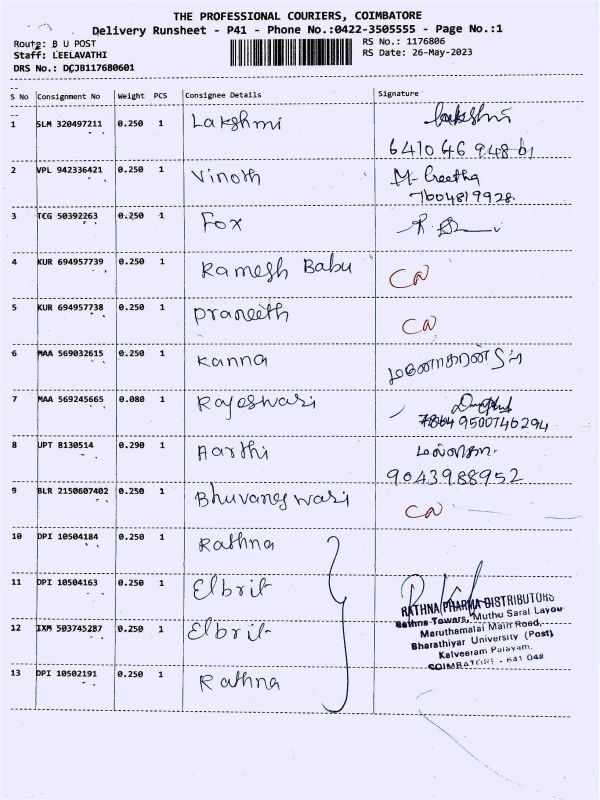 THE PROFESSIONAL COURIERS, COIMBATORE
Delivery Runsheet - P41 - Phone No.:0422-3505555 - Page No.:1
Route: B U POST
Staff: LEELAVATHI
DRS No.: DCJB117680601
RS No.: 1176806
RS Date: 26-May-2023
S No Consignment No Weight PCS Consignee Details Signature
1 SLM 320497211 0.250 1 Lakshmi Lakshmi
6410 46 948 61
2 VPL 942336421 0.250 1 Vinoth M. Geetha
7604819928.
3 TCG 50392263 0.250 1 Fox
4 KUR 694957739 0.250 1 Ramesh Babu CN
5 KUR 694957738 0.250 1 Praneeth CN
6 MAA 569032615 0.250 1 Kanna
7 MAA 569245665 0.080 1 Rajeswari
9500746294
8 UPT 8130514 0.290 1 Aarthi
9043988952
9 BLR 2150607402 0.250 1 Bhuvaneswari CN
10 DPI 10504184 0.250 1 Rathna
11 DPI 10504163 0.250 1 Elbrit
12 IXM 503745287 0.250 1 Elbrit
13 DPI 10502191 0.250 1 Rathna
RATHNA PHARMA DISTRIBUTORS
Rathna Towers, Muthu Saral Layou
Maruthamalai Main Road,
Bharathiyar University (Post)
Kalveeram Palayam,
COIMBATORE - 641 046